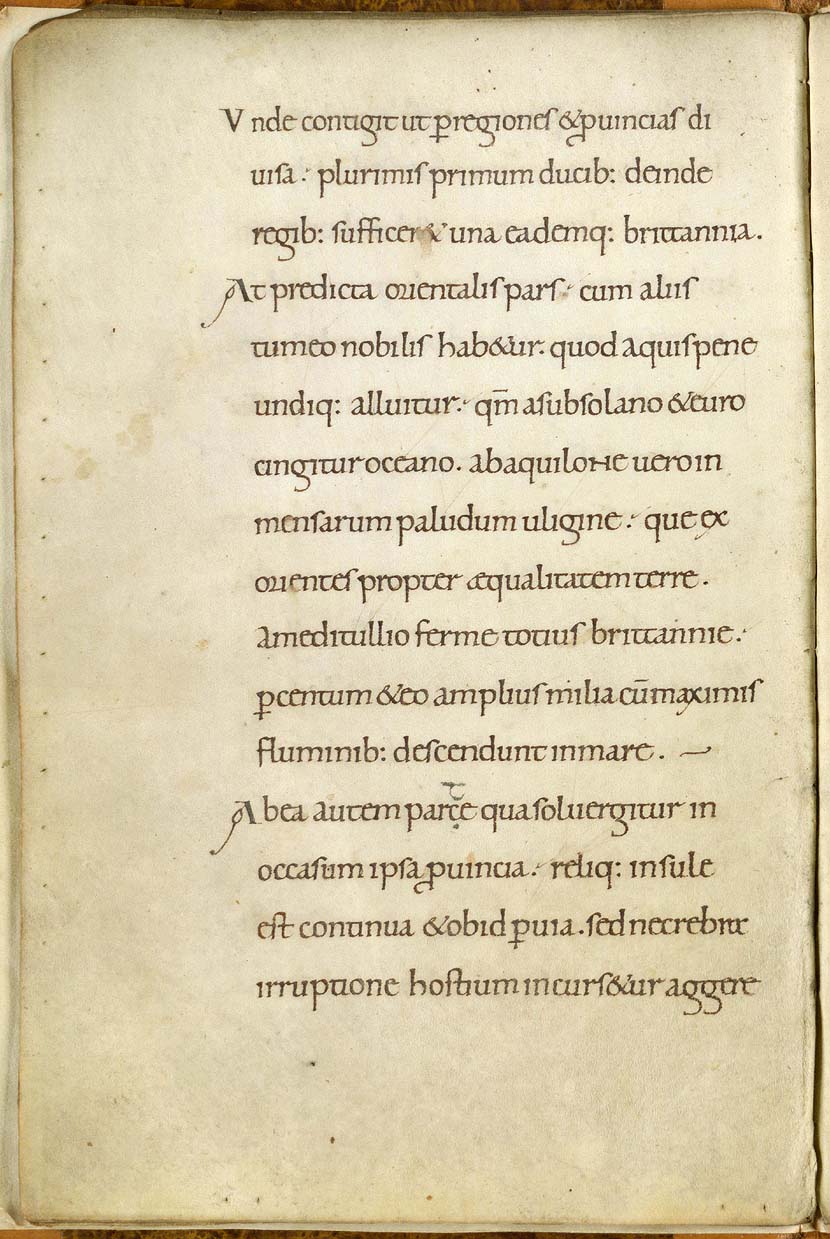 Vnde contigit ut ꝑ regiones & ꝓuincias di
uisa. plurimis primum ducib: deinde
regib: sufficer& una eademq: brittannia.
At predicta orientalis pars. cum aliis
tum eo nobilis hab&ur. quod aquis pene
undiq: alluitur. qm̄ a subsolano & euro
cingitur oceano. ab aquilone uero in
mensarum paludum uligine. que ex
orientes propter æqualitatem terre.
a meditullio ferme totius brittannie.
ꝑ centum & eo amplius milia cū maximis
fluminib: descendunt in mare.
Ab ea autem parte qua sol uergitur in
occasum ipsa ꝓuincia. reliq: insule
est continua & ob id ꝑuia. sed ne crebra
irruptione hostium incurs&ur aggere